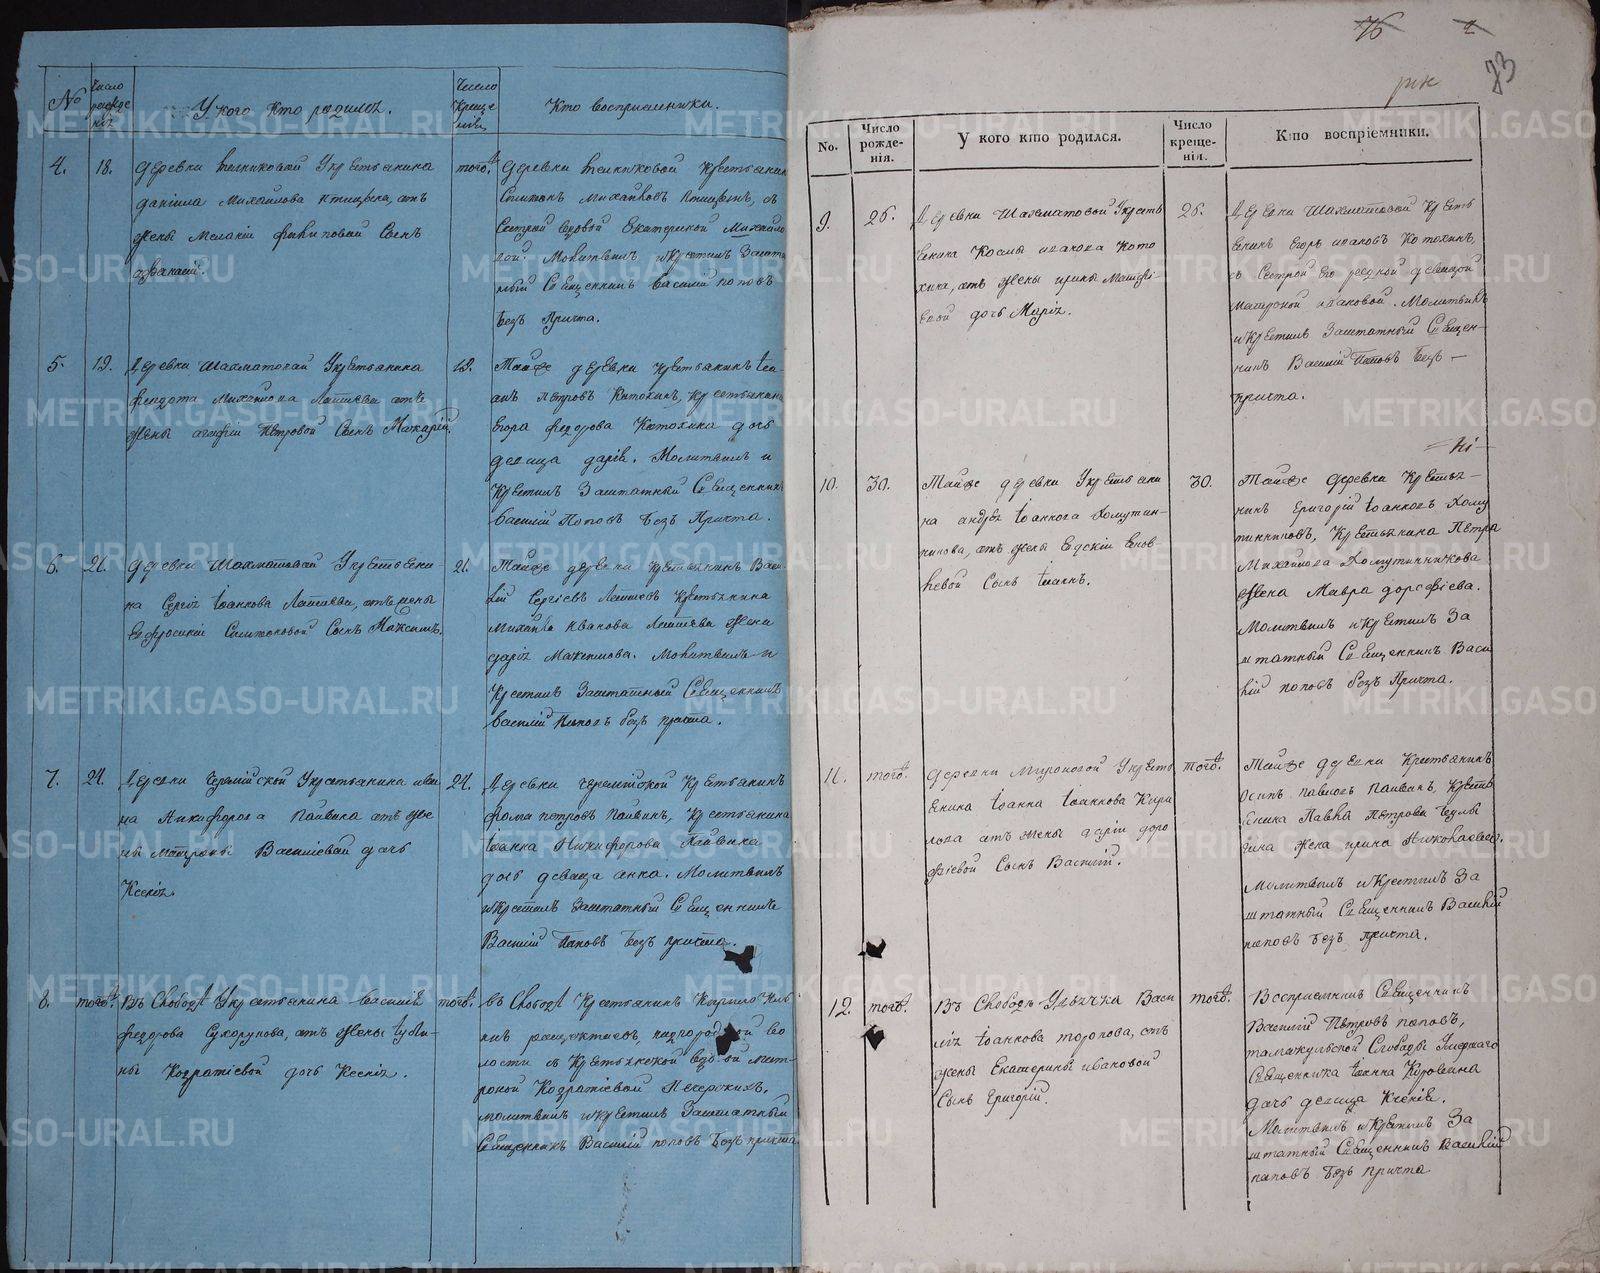 №
Число рожде нія
У кого кто родился.
Число креще нія
Кто восприемники.
4.
18.
деревни крестьянина
даніила Михайлова Птицына, отъ
жены Меланіи Филиповой Сынъ
того.
деревни крестьянинъ
Симеонъ Михайловъ Птицынъ, съ
Сестрой вдовой Екатериной Михайло
вой. Молитвилъ и крестилъ Зашта
тный Священникъ Василій Поповъ
безъ Причта.
5.
19.
деревни Шахматовой У крестьянина
Федота Михайлова Лаптева отъ
жены Петровой Сынъ Макарій.
19.
Тойже деревни крестьянинъ
Петровъ Котохинъ, крестьянина
Егора Федорова Котохина дочь
девица дарія. Молитвилъ и
Крестилъ Заштатный Священникъ
Василій Поповъ Безъ Причта.
6.
21.
деревни Шахматовой У крестьяни
на Сергія Іоаннова Лаптева, отъ жены
Евфросиніи Симеоновой Сынъ Максимъ.
21.
Тойже деревни крестьянинъ Васи
лій Сергіевъ Лаптевъ крестьянина
Михаила Иванова Лаптева жена
дарія Максимова. Молитвилъ и
Крестилъ Заштатный Священникъ
Василій Поповъ безъ причта.
7.
24.
деревни Черемійской У крестьянина Ива
на Никифорова Пайвина отъ же
ны Матроны Василіевой дочь
Ксенія.
24.
деревни Черемійской Крестьянинъ
Фома Петровъ Пайвинъ, Крестьянина
Іоанна Никифорова Пайвина
дочь девица Анна. Молитвилъ
и Крестилъ Заштатный Священникъ
Василій Поповъ безъ причта.
8.
того.
Въ Слободе У крестьянина Василія
Федорова Сухорукова, отъ жены
ны Кодратіевой дочь Ксенія.
того.
въ Слободе Крестьянинъ
во
лости съ Крестьянской вдовой Мат
роной Кодратіевой
молитвилъ и Крестилъ Заштатный
Священникъ Василій поповъ безъ причта
76
2
73
No.
Число рожде-нія.
У кого кто родился.
Число креще-нія.
Кто воспріемники.
9.
26.
деревни Шахматовой У кресть
янина Космы Иванова Кото
хина, отъ жены Ирины Матвѣ
евой дочь Марія.
26.
деревни Шахматовой Кресть
янинъ Егоръ Ивановъ Котохинъ,
съ Сестрой его родной девицой
Матроной Ивановой. Молитвилъ
и Крестилъ Заштатный Священ-
никъ Василій Поповъ безъ —
причта.
10.
30.
Тойже деревни У крестьяни
на Андрея Іоаннова Хомутин-
никова, отъ жены
Сынъ Іоаннъ.
30.
Тойже деревни Крестья-
нинъ Григорій Іоанновъ Хому
тинниковъ, Крестьянина Петра
Михайлова Хомутинникова
жена Мавра Дорофѣева.
Молитвилъ и Крестилъ За
штатный Священникъ Васи
лій поповъ безъ Причта.
11.
того.
деревни Мироновой У кресть
янина Іоанна Іоаннова Кири
лова отъ жены Даріи Доро
фѣевой Сынъ Василій.
того.
Тойже деревни Крестьянинъ
Осипъ Павловъ Пайвинъ, Кресть
янина Павла Петрова
гина жена Ирина Николаевa.
Молитвилъ и Крестилъ За
штатный Священникъ Василій
поповъ безъ причта.
12.
того.
Въ Слободе У Васи
лія Іоаннова Торопова, отъ
жены Екатерины Ивановой
Сынъ Григорій.
того.
Восприемникъ Священникъ
Василій Петровъ поповъ,
Слободы Умершаго
Священника Іоанна Коровина
дочь девица Ксенія.
Молитвилъ и Крестилъ За
штатный Священникъ Василій
поповъ безъ причта
METRIKI.GASO-URAL.RU